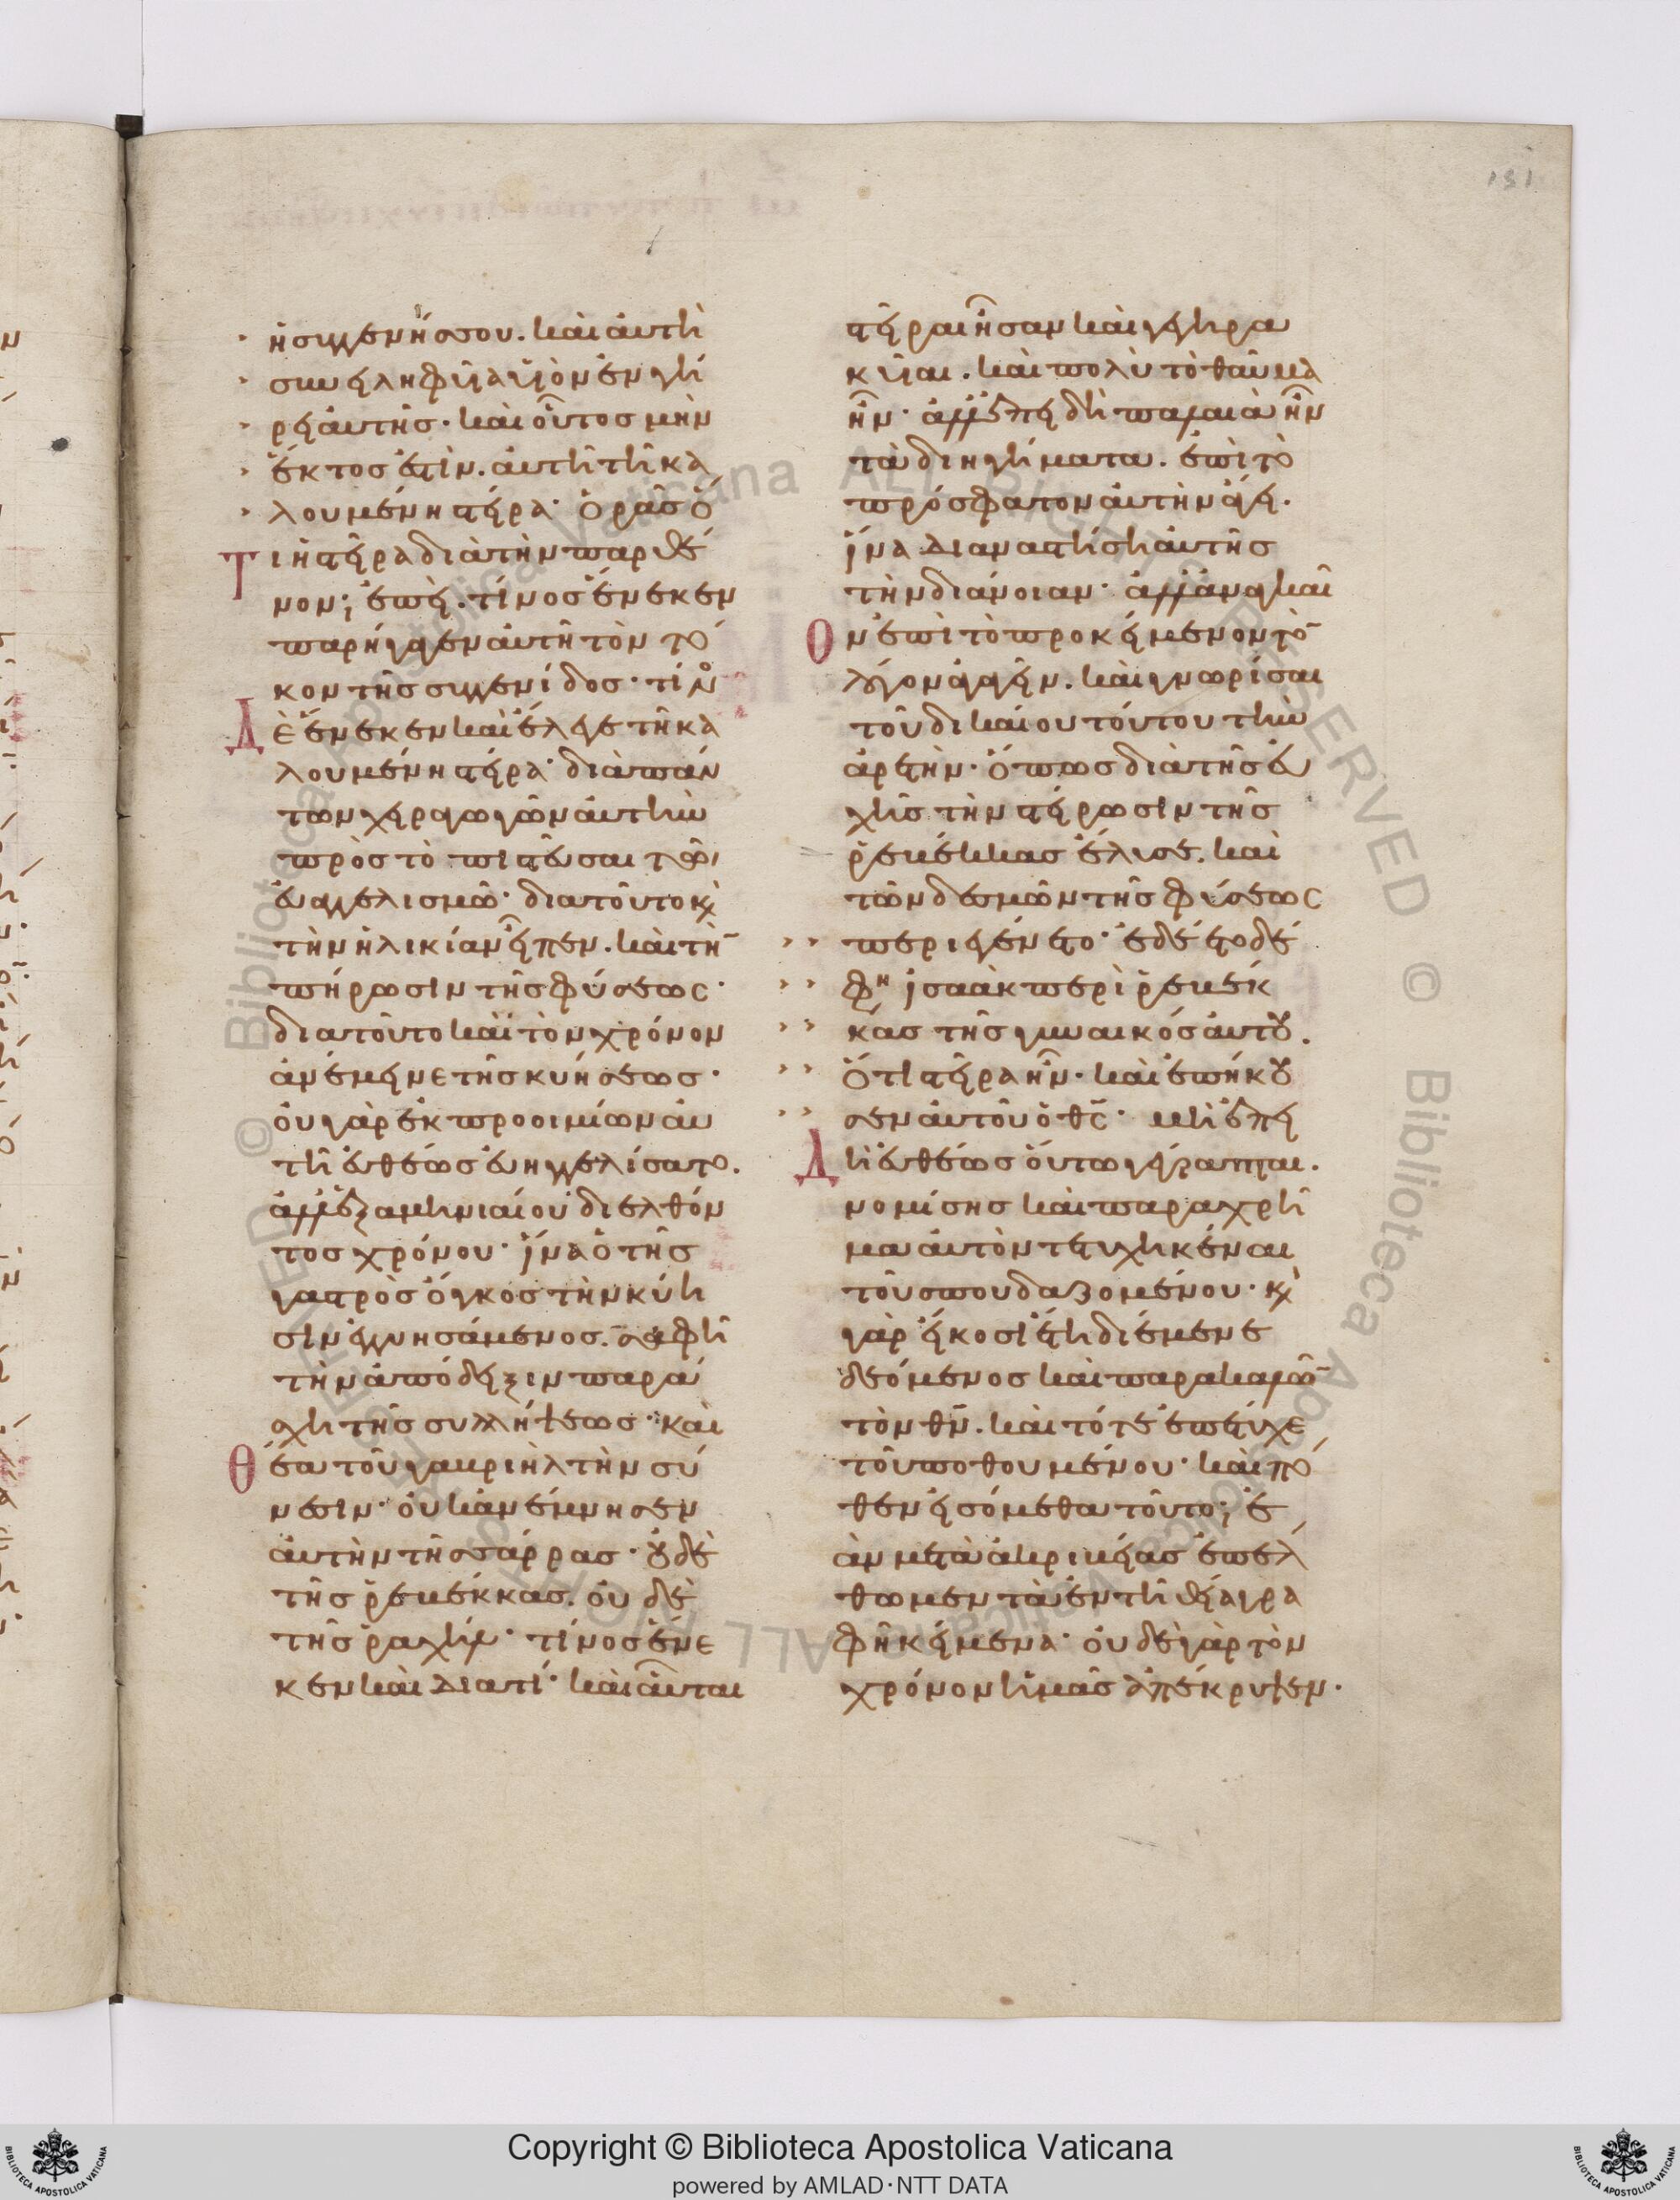 131
ἡ συγγενής σου. καὶ αὐτὴ
συνειληφυῖα υἱὸν ἐν γή
ρει αὐτῆς· καὶ οὗτος μὴν
ἕκτος ἐστὶν. αὐτῆ τῆ κα
λουμένη στείρα· ὁρᾶς ὅ
τι ἡ στεῖρα διὰ τὴν παρθέ
νον; ἐπεὶ. τίνος ἕνεκεν
παρήγαγεν αὐτῆ τὸν τό
κον τῆς συγγενίδος· τίνος
δὲ ἕνεκεν καὶ ἔλεγε τῆ κα
λουμένη στείρα· διὰ πάν
των χειραγωγῶν αὐτὴν
πρὸς τὸ πιστεῦσαι τῶ
εὐαγγελισμῶ· διατοῦτο κὶ
τὴν ἡλικίαν εἶπεν. καὶ τὴν
πήρωσιν τῆς φύσεως·
διατοῦτο καὶ τὸν χρόνον
ἀνέμεινε τῆς κυήσεως·
οὐ γὰρ ἐκ προοιμίων αὐ
τῆ εὐθέως εὐηγγελίσατο.
ἀλλ' ἑξαμηνιαίου διελθόν
τος χρόνου· ἵνα ὁ τῆς
γαστρὸς ὄγκος τὴν κύη
σιν ἐγγυησάμενος. σαφῆ
τὴν ἀπόδειξιν παρά
σχη τῆς συλλήψεως· καὶ
θέα τοῦ γαβριὴλ τὴν σύ
νεσιν· οὐκ ἀνέμνησεν
αὐτὴν τῆς σάρρας· οὐδὲ
τῆς ῥεβέκκας. οὐδὲ
τῆς ῥαχήλ· τίνος ἕνε
κεν καὶ διατί· καὶ αὗται
στεῖραι ἦσαν καὶ γεγηρα
κυῖαι. καὶ πολὺ τὸ θαῦμα
ἦν· ἀλλ' ἐπειδὴ παλαιὰ ἦν
τὰ διηγήματα. ἐπὶ τὸ
πρόσφατον αὐτὴν ἄγει.
ἵνα διαναστήση αὐτῆς
τὴν διάνοιαν· ἀλλ' ἀναγκαῖ
ον ἐπὶ τὸ προκείμενον τὸν
λόγον ἀγαγεῖν. καὶ γνωρίσαι
τοῦ δικαίου τούτου τὴν
ἀρετὴν· ὅπως διὰ τῆς εὐ
χῆς τὴν στείρωσιν τῆς
ῥεβέκκας ἔλυσε. καὶ
τῶν δεσμῶν τῆς φύσεως
περιεγένετο· ἐδέετο δέ
φη ἰσαὰκ περὶ ῥεβέκ
κας τῆς γυναικός αὐτοῦ.
ὅτι στεῖρα ἦν· καὶ ἐπήκου
σεν αὐτοῦ ὁ θς· μὴ ἐπει
δὴ εὐθέως οὕτω γέγραπται.
νομίσης καὶ παραχρῆ
μα αὐτὸν τετυχηκέναι
τοῦ σπουδαζομένου· κὶ
γὰρ εἴκοσι ἔτη διέμενε
δεόμενος καὶ παρακαλῶν
τὸν θν. καὶ τότε ἐπέτυχε
τοῦ ποθουμένου· καὶ πό
θεν εἰσόμεθα τοῦτο; ἐ
ὰν μετὰ ἀκριβείας ἐπέλ
θωμεν τὰ ἐν τῆ θεία γρα
φῆ κείμενα· οὐδὲ γὰρ τὸν
χρόνον ἡμᾶς ἀπέκρυψεν.
Copyright © Biblioteca Apostolica Vaticana
powered by AMLAD·NTT DATA